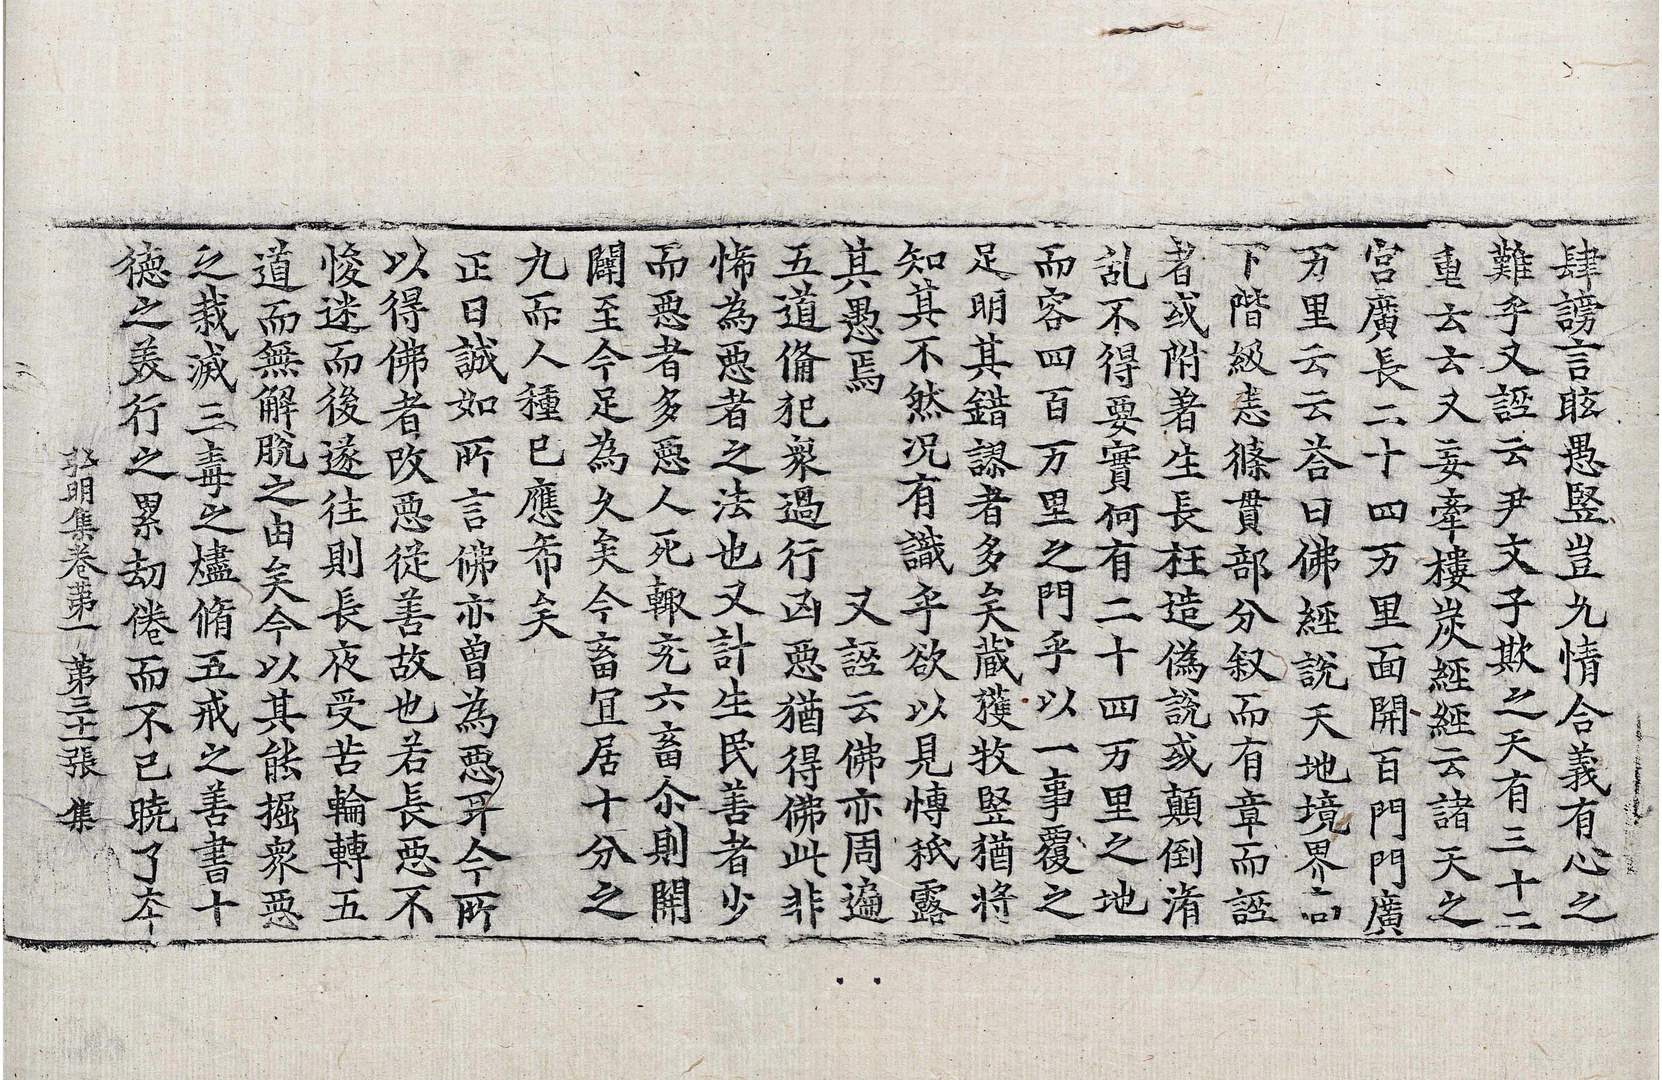 肆謗言眩愚竪豈允情合義有心之
難乎又誣云尹文子欺之天有三十二
重云云又妄牽樓炭經經云諸天之
宮廣長二十四万里面開百門門廣
万里云云荅曰佛經說天地境界高
下階級悉條貫部分叙而有章而誣
者或附著生長枉造偽說或顛倒淆
乱不得要實何有二十四万里之地
而容四百万里之門乎以一事覆之
足明其錯謬者多矣藏獲牧竪猶將
知其不然况有識乎欲以見愽秖露
其愚焉　又誣云佛亦周遍
五道俻犯衆過行凶惡猶得佛此非
怖為惡者之法也又計生民善者少
而惡者多惡人死輙充六畜尒則開
闢至今足為久矣今畜冝居十分之
九而人種已應希矣
正曰誠如所言佛亦曾為惡耳今所
以得佛者改惡従善故也若長惡不
悛迷而後遂往則長夜受苦輪轉五
道而無解脫之由矣今以其能掘衆惡
之栽滅三毒之燼脩五戒之善書十
德之美行之累劫倦而不已曉了本
弘明集卷苐一　苐三十一張　集